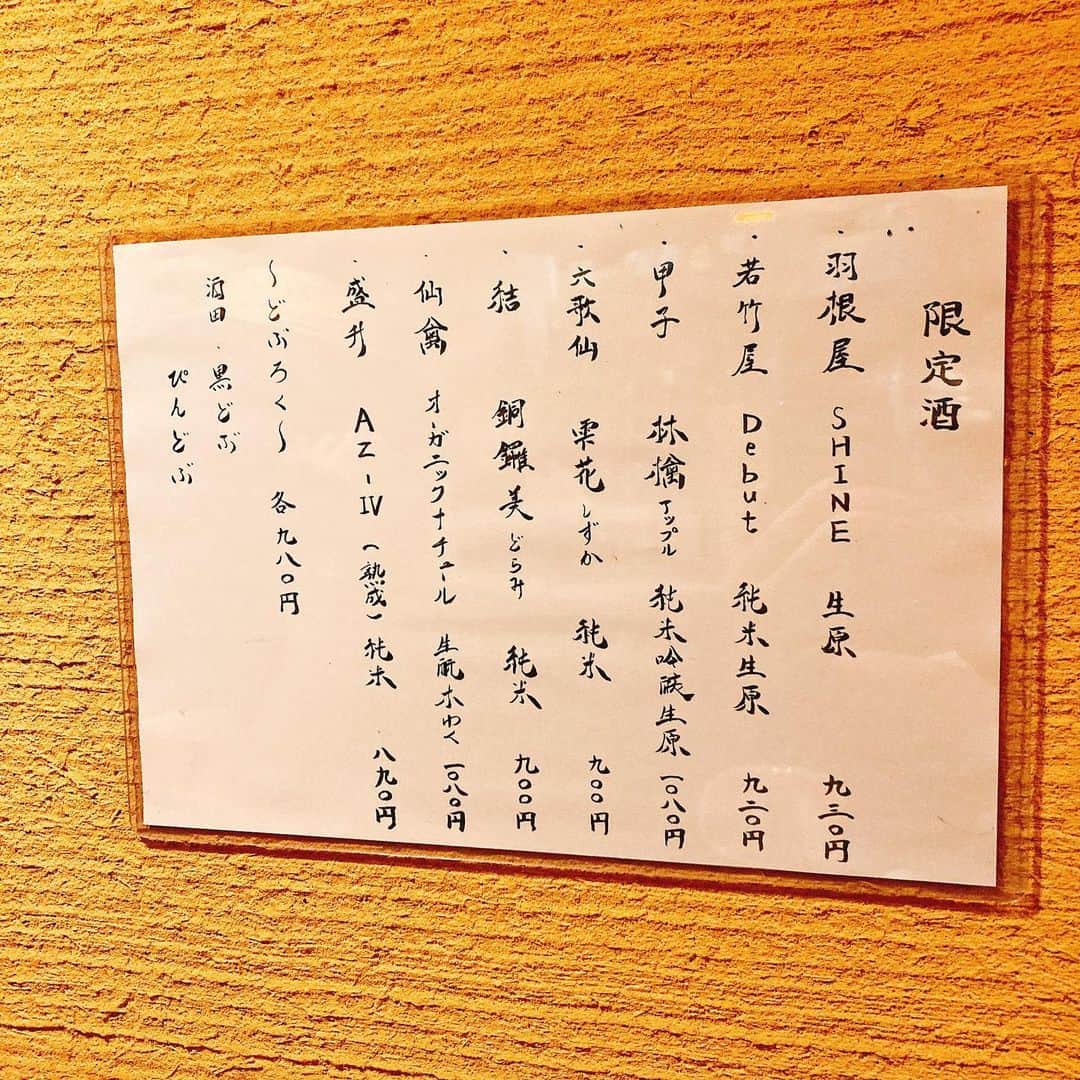 限定酒
・羽根屋 SHINE 生原 九三〇円
・若竹屋 Debut 純米生原 九二〇円
・甲子 林檎アップル 純米吟醸生原 一〇八〇円
・六歌仙 雫花しずか 純米 九〇〇円
・結 銅鑼美どらみ 純米 九〇〇円
・仙禽 オーガニックナチュール 生酛木わく 一〇八〇円
・盛升 AZ-Ⅳ(熟成)純米 八九〇円
〜どぶろく〜 各九八〇円
酒田・黒どぶ
ぴんどぶ